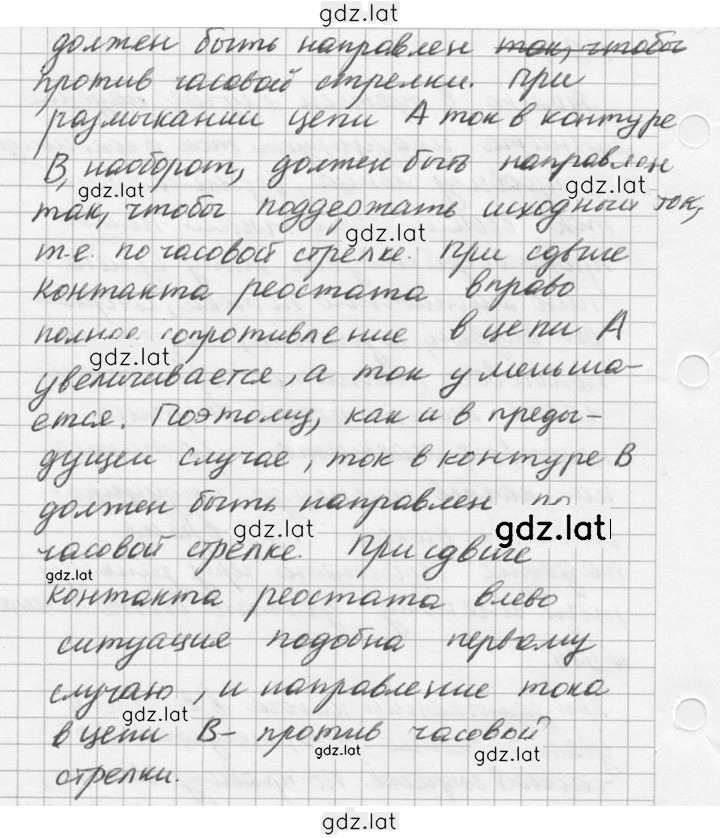 gdz.lat
должен быть направлен ток, чтобы
против часовой стрелки. При
размыкании цепи А ток в контуре
В, наоборот, должен быть направлен
gdz.lat
gdz.lat
так, чтобы поддержать исходный ток,
gdz.lat
т.е. по часовой стрелке. При сдвиге
контакта реостата вправо
полное сопротивление в цепи А
gdz.lat
увеличивается, а ток уменьша-
ется. Поэтому, как и в преды-
дущем случае, ток в контуре В
должен быть направлен по
gdz.lat
gdz.lat
часовой стрелке. При сдвиге
gdz.lat
контакта реостата влево
ситуация подобна первому
случаю, и направление тока
gdz.lat
в цепи В- против часовой
gdz.lat
gdz.lat
стрелки.
gdz.lat